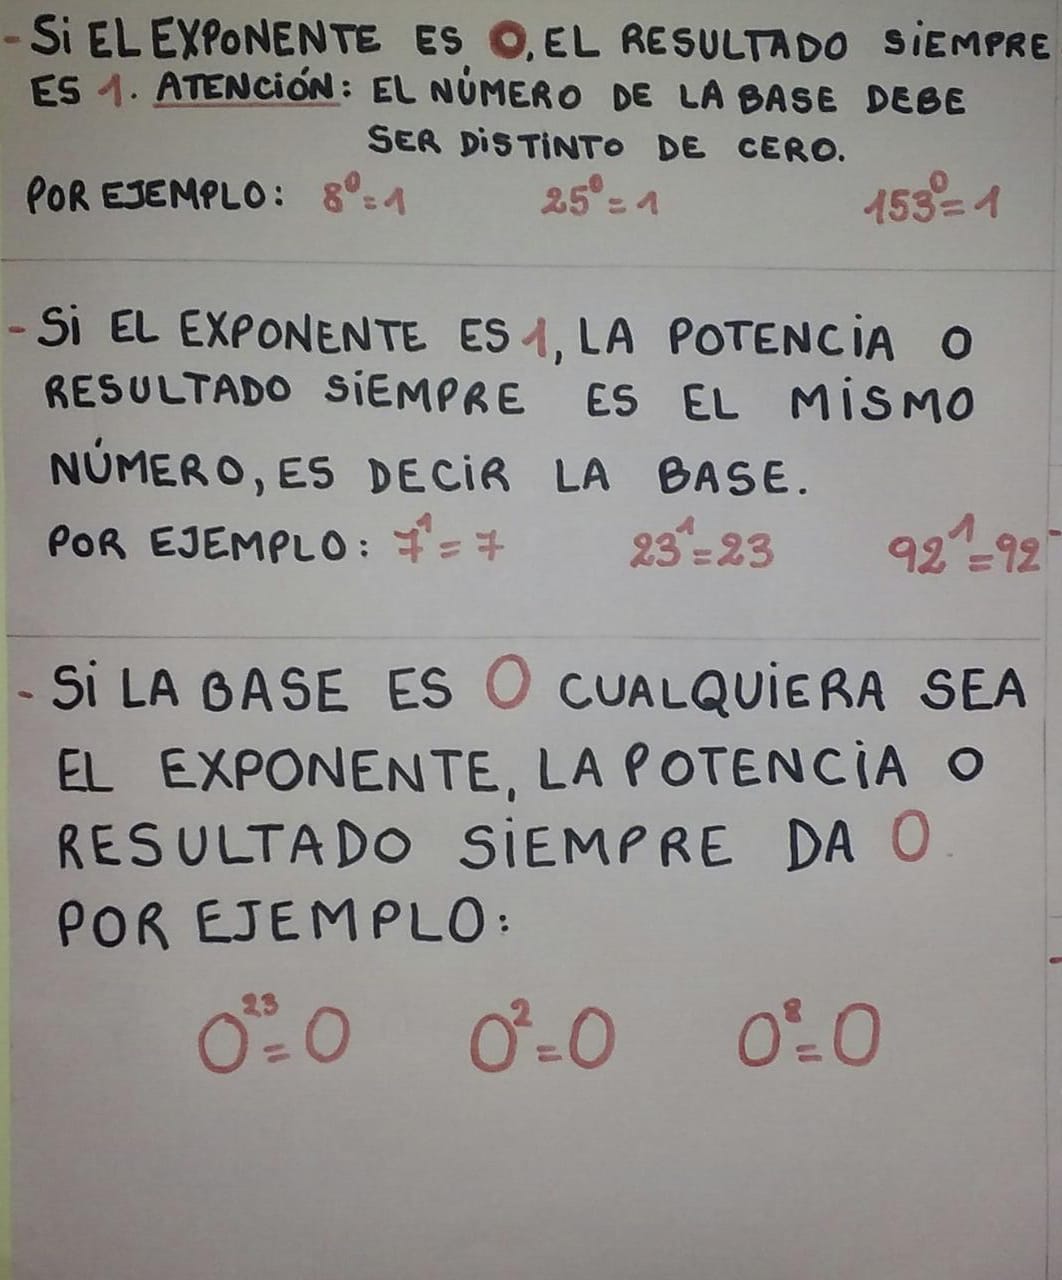 - Si EL EXPONENTE ES 0, EL RESULTADO SIEMPRE
ES 1. ATENCIÓN: EL NÚMERO DE LA BASE DEBE
SER DISTINTO DE CERO.
POR EJEMPLO: 8⁰=1 25⁰=1 153⁰=1
- Si EL EXPONENTE ES 1, LA POTENCIA O
RESULTADO SIEMPRE ES EL MISMO
NÚMERO, ES DECIR LA BASE.
POR EJEMPLO: 7¹=7 23¹=23 92¹=92
- Si LA BASE ES 0 CUALQUIERA SEA
EL EXPONENTE, LA POTENCIA O
RESULTADO SIEMPRE DA 0.
POR EJEMPLO:
0²³=0 0²=0 0⁸=0